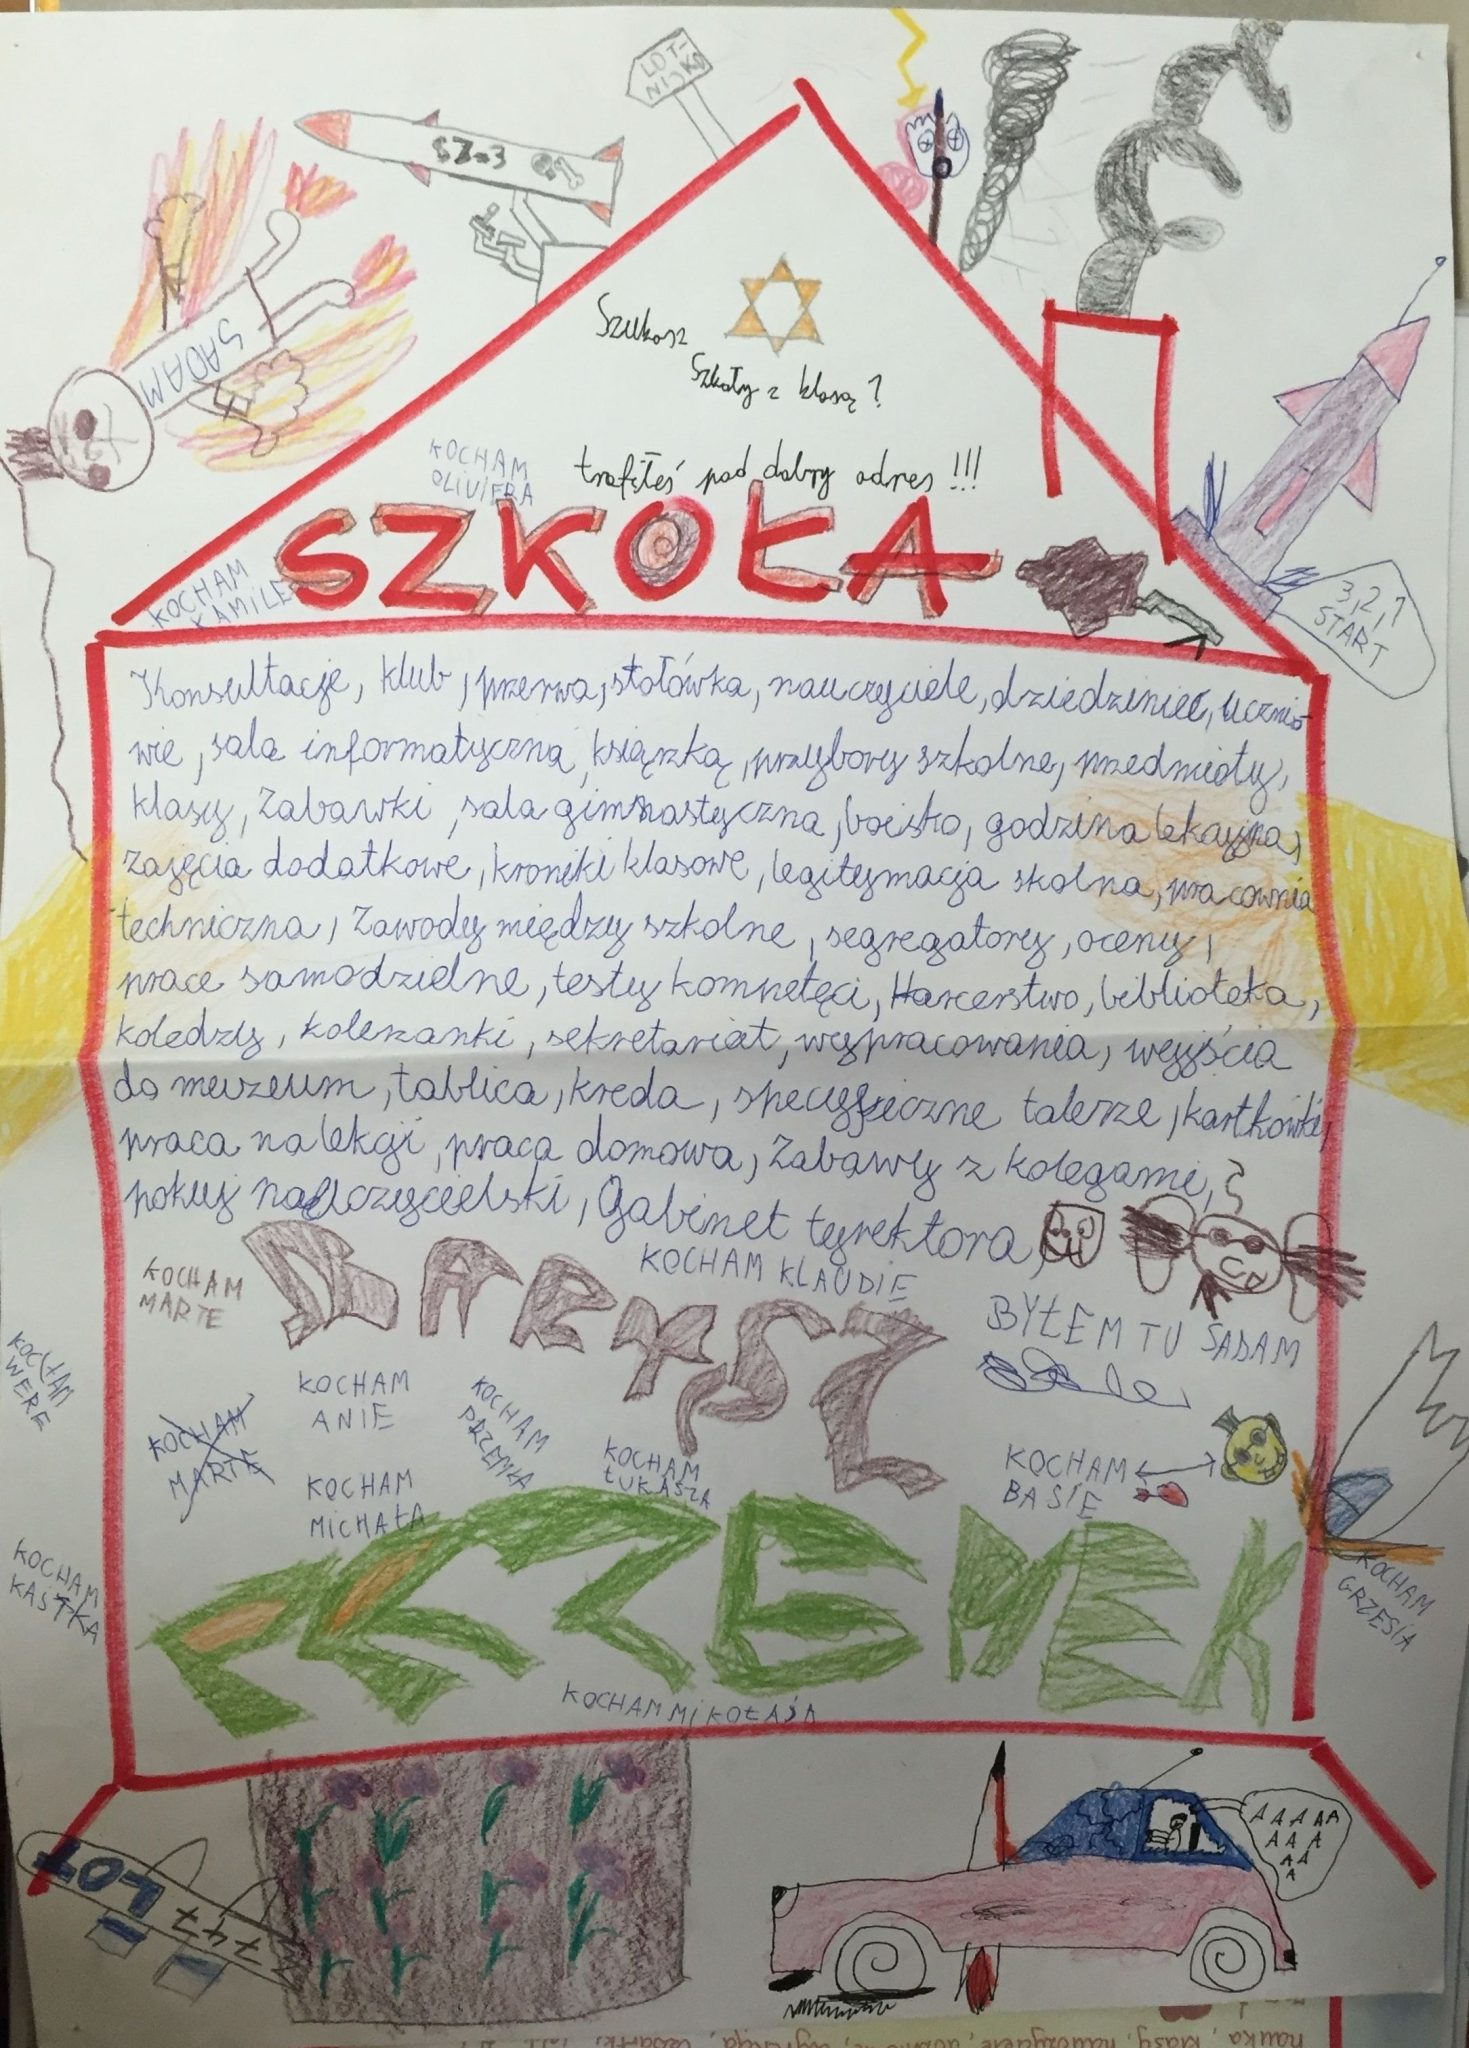 LOT-
NISKO
SZ=3
SADAM
Szukasz
Szkoły z klasą?
trafiłeś pod dobry adres!!!
KOCHAM
OLIVIERA
SZKOŁA
KOCHAM
KAMILE
3,2,1
START
Konsultacje, klub, przerwa, stołówka, nauczyciele, dziedziniec, ucznio-
wie, sala informatyczna, książką, przybory szkolne, przedmioty,
klasy, Zabawki, sala gimnastyczna, boisko, godzina lekcyjna,
zajęcia dodatkowe, kroniki klasowe, legitymacja skolna, pracownia
techniczna, Zawody między szkolne, segregatory, oceny,
prace samodzielne, testy kompetęci, Harcerstwo, biblioteka,
koledzy, koleżanki, sekretariat, wypracowania, wyjścia
do muzeum, tablica, kreda, specyficzne talerze, kartkówki,
praca na lekcji, praca domowa, Zabawy z kolegami,
pokuj nauczycielski, Gabinet tyrektora,
KOCHAM
MARTE
BARYSZ
KOCHAM KLAUDIE
BYŁEM TU SADAM
KOCHAM
WERE
KOCHAM
MARTE
KOCHAM
ANIE
KOCHAM
PRZEMKA
KOCHAM
ŁUKASZA
KOCHAM
BASIE
KOCHAM
MICHAŁA
KOCHAM
KAŚKA
PRZEMEK
KOCHAM
GRZESIA
KOCHAM MIKOŁAJA
LOT
747
AAAAA
AAA
AA
A